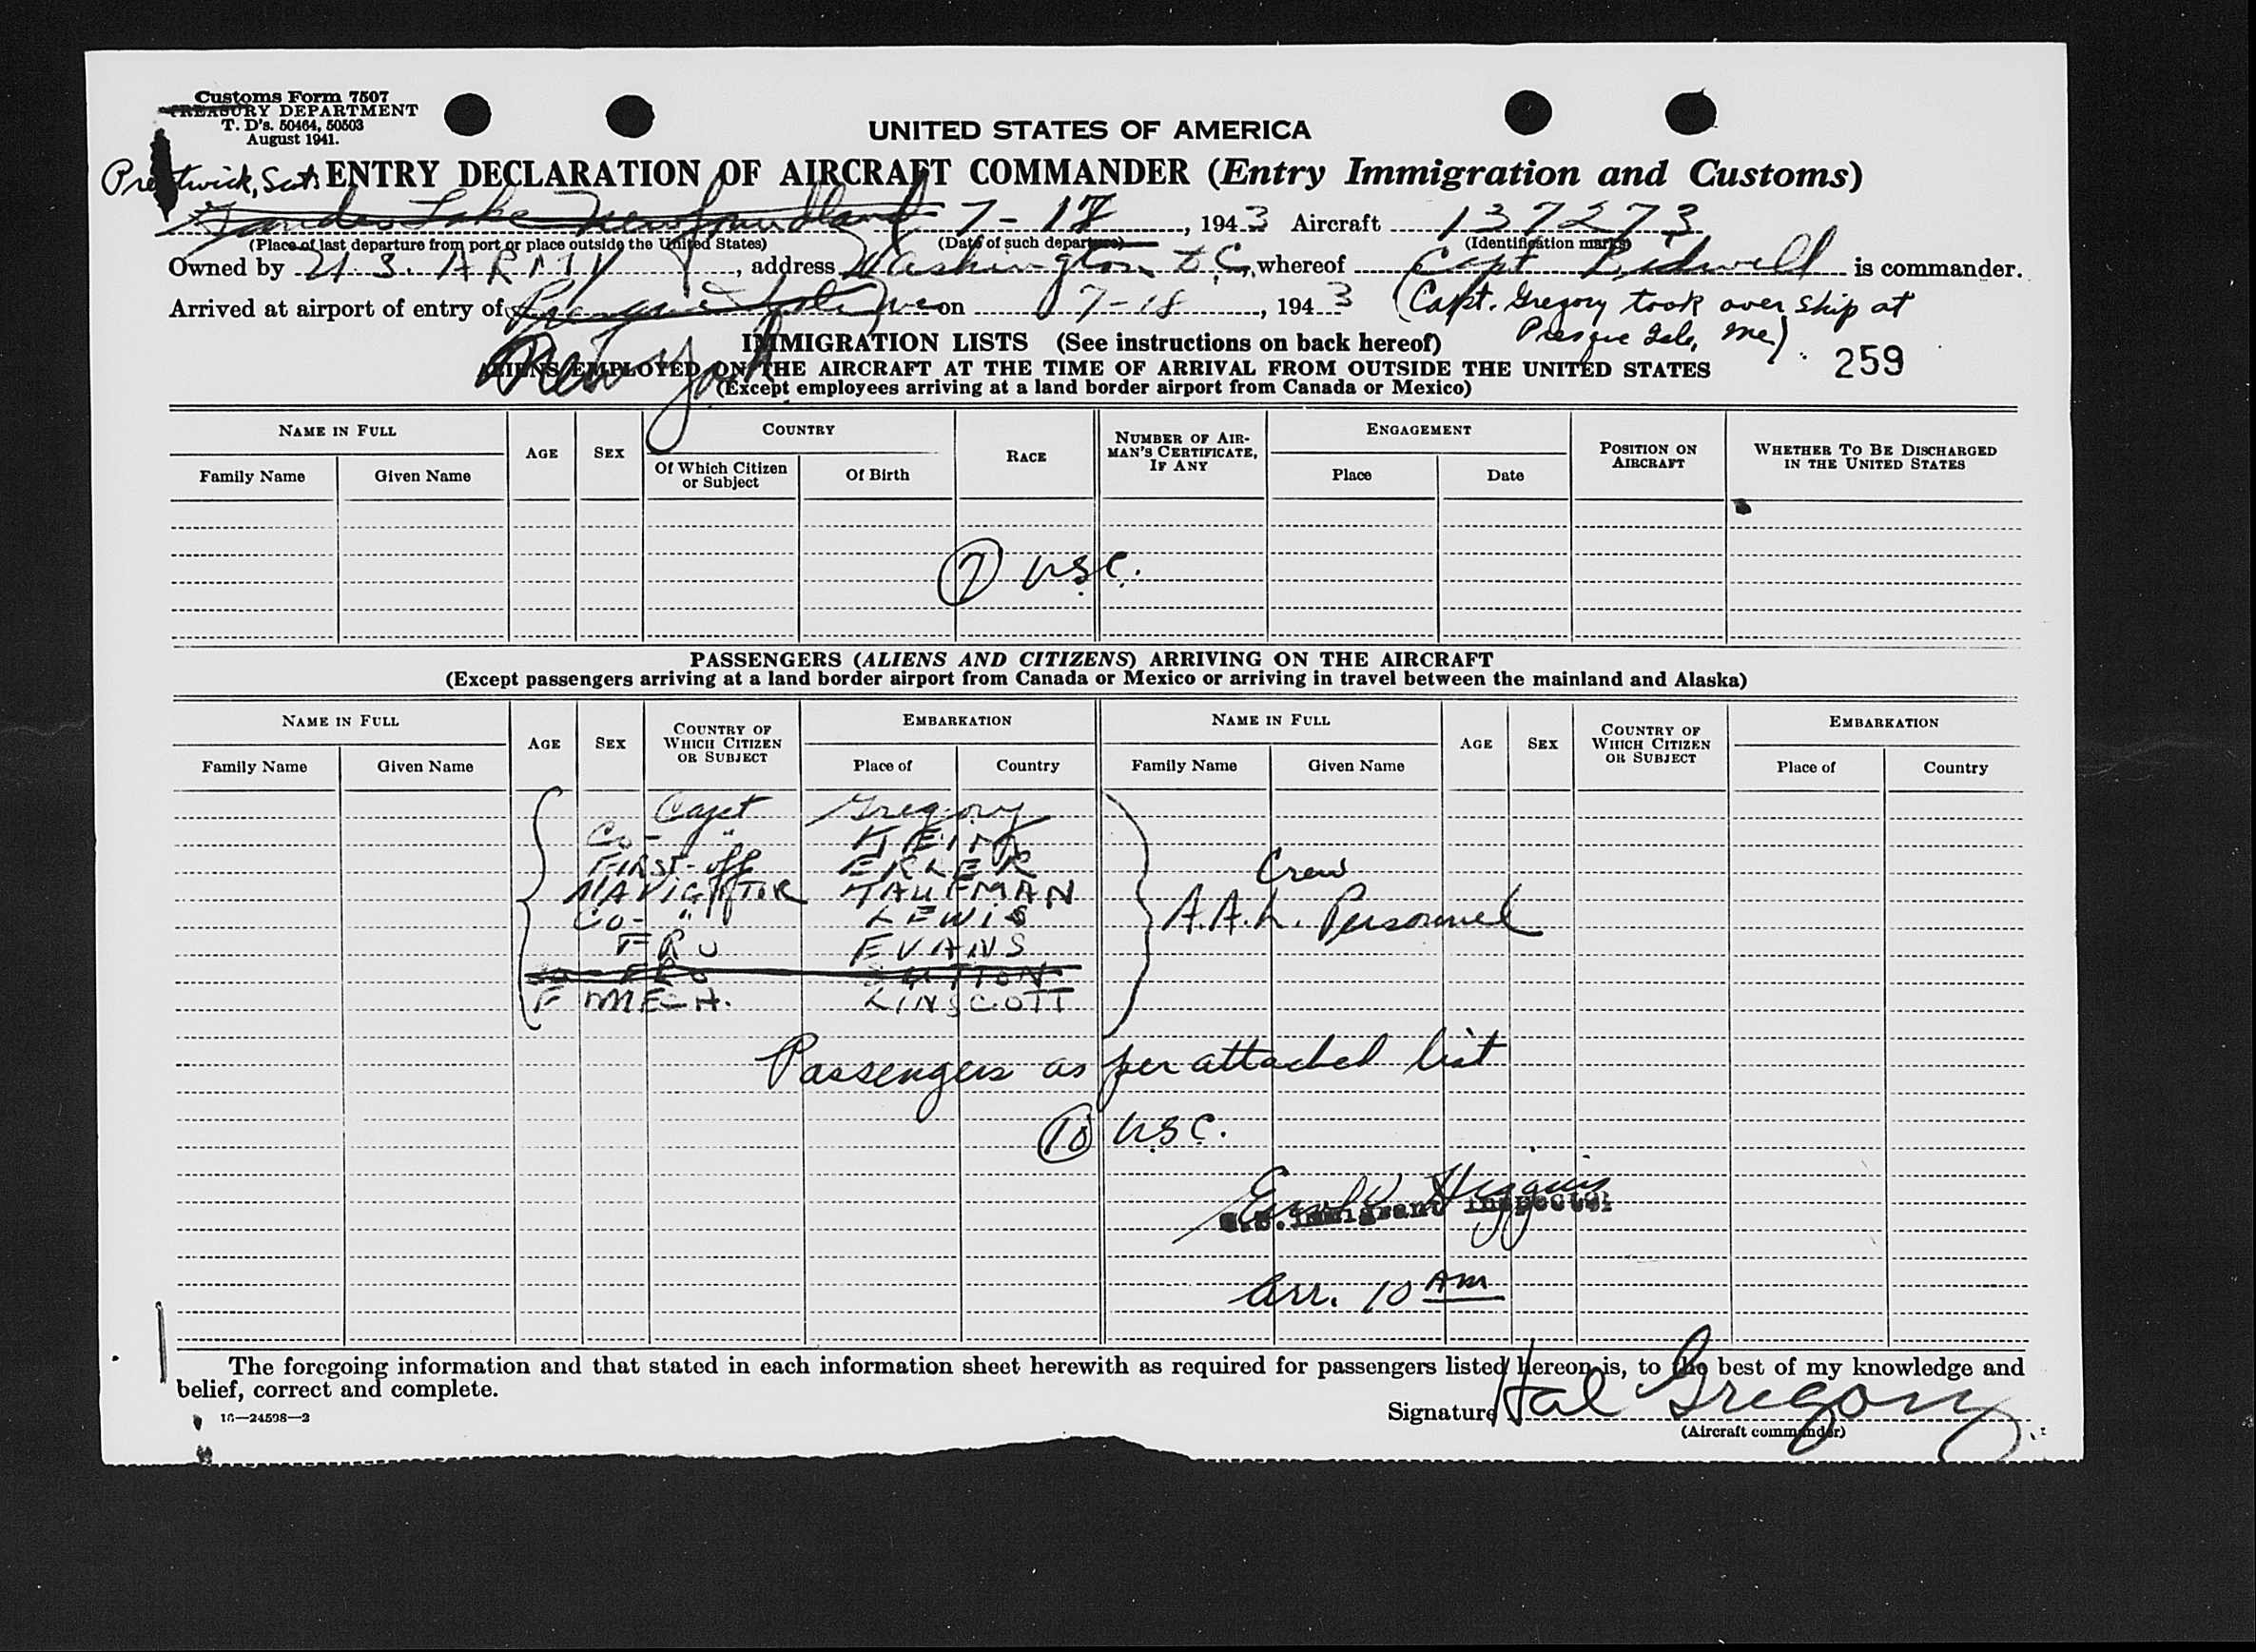 Customs Form 7507
TREASURY DEPARTMENT
T. D's. 50464, 50503
August 1941.
UNITED STATES OF AMERICA
Prestwick, Scot. ENTRY DECLARATION OF AIRCRAFT COMMANDER (Entry Immigration and Customs)
Gander Lake Newfoundland 7-18, 1943 Aircraft 137273
(Place of last departure from port or place outside the United States) (Date of such departure) (Identification marks)
Owned by U.S. ARMY, address Washington D.C., whereof Capt Bidwell is commander.
Arrived at airport of entry of Presque Isle Me on 7-18, 1943 (Capt. Gregory took over ship at
Presque Isle, Me.)
New York
IMMIGRATION LISTS (See instructions on back hereof)
259
ALIENS EMPLOYED ON THE AIRCRAFT AT THE TIME OF ARRIVAL FROM OUTSIDE THE UNITED STATES
(Except employees arriving at a land border airport from Canada or Mexico)
NAME IN FULL AGE SEX COUNTRY RACE NUMBER OF AIRMAN'S CERTIFICATE, IF ANY ENGAGEMENT POSITION ON AIRCRAFT WHETHER TO BE DISCHARGED IN THE UNITED STATES
Family Name Given Name Of Which Citizen or Subject Of Birth Place Date
7 USC.
PASSENGERS (ALIENS AND CITIZENS) ARRIVING ON THE AIRCRAFT
(Except passengers arriving at a land border airport from Canada or Mexico or arriving in travel between the mainland and Alaska)
NAME IN FULL AGE SEX COUNTRY OF WHICH CITIZEN OR SUBJECT EMBARKATION NAME IN FULL AGE SEX COUNTRY OF WHICH CITIZEN OR SUBJECT EMBARKATION
Family Name Given Name Place of Country Family Name Given Name Place of Country
Capt Gregory
Co- "
FIRST-off ERLER
Crew
NAVIGATOR TAUFMAN
Co- " LEWIS
A.A.L. Personnel
F R O EVANS
Co- FRO SUTTON
F MECH. LINSCOTT
Passengers as per attached list
10 USC.
Higgins
U.S. Immigrant Inspector
Arr. 10 AM
The foregoing information and that stated in each information sheet herewith as required for passengers listed hereon is, to the best of my knowledge and
belief, correct and complete.
16—24598-2
Signature Hal Gregory
(Aircraft commander)